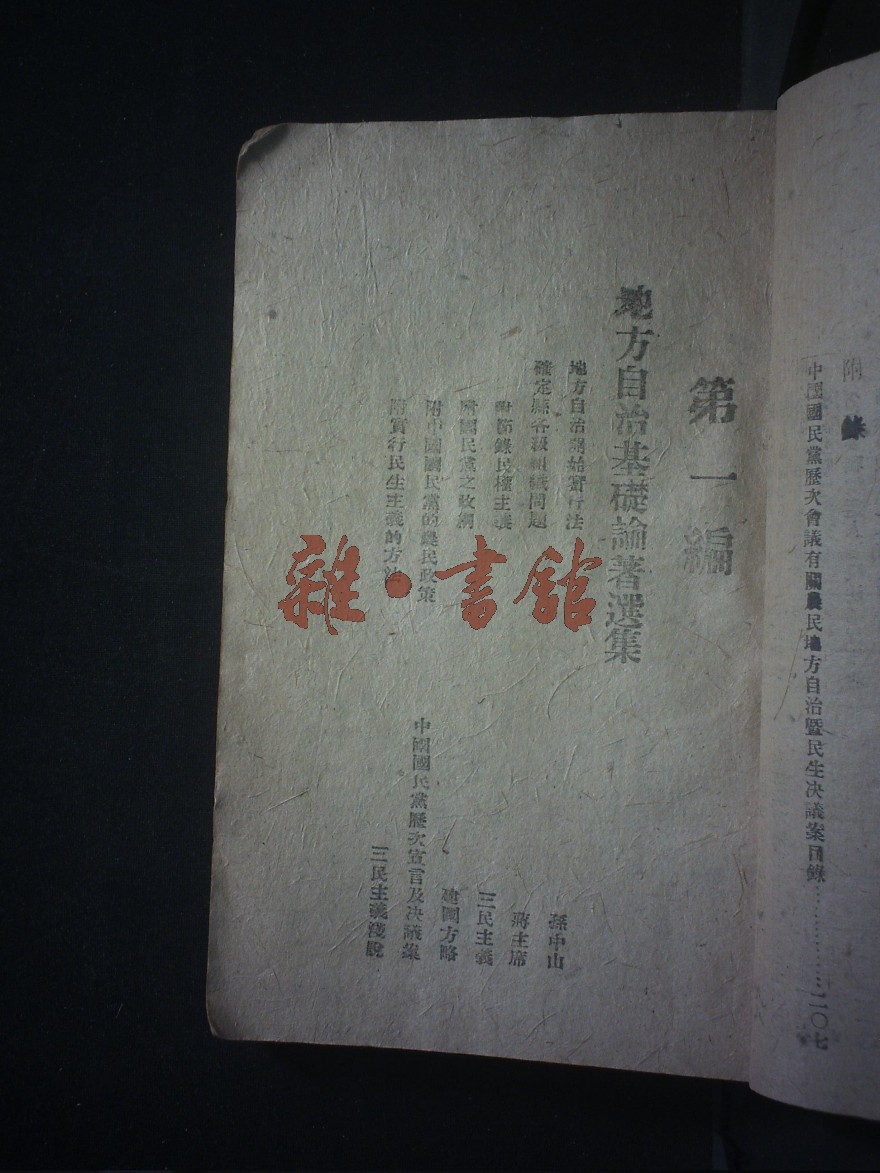 附錄
中國國民黨歷次會議有關農民地方自治暨民生決議案目錄……………二〇七
第一編
地方自治基礎論著選集
地方自治開始實行法 孫中山
確定縣各級組織問題 蔣主席
附節錄民權主義 三民主義
附國民黨之政綱 建國方略
附中國國民黨的農民政策 中國國民黨歷次宣言及決議案
附實行民生主義的方法 三民主義淺說
雜·書館